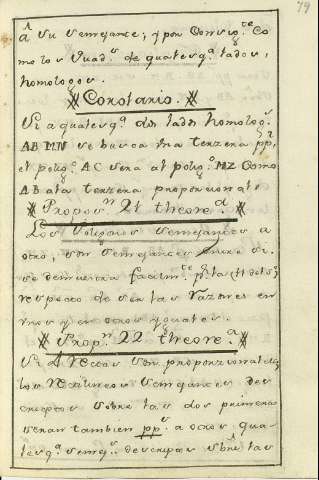 79
á su semejante; y por Consig.te Co
mo los Quad.s de qualesq.a lados,
homologos.
Corolario.
Si a qualesq.a dos lados homolog.s
AB MN se busca una terzera pp.l
el polig.o AC sera al polig.o MZ Como
AB ala terzera proporcional.
Propos.n 21 theore.a
Los Poligonos semejantes a
otro, son semejantes entre si.
se demuestra facilm.te p.r la 11 del 5
respecto de ser las razones en
unos y en otros yguales.
Prop.n 22 theore.a
Si 4 rectas son proporzionales,
los rectilineos semejantes des
criptos sobre las dos primeras
seran tambien pp.s a otros qua
lesq.a semej.s descriptos sbre las